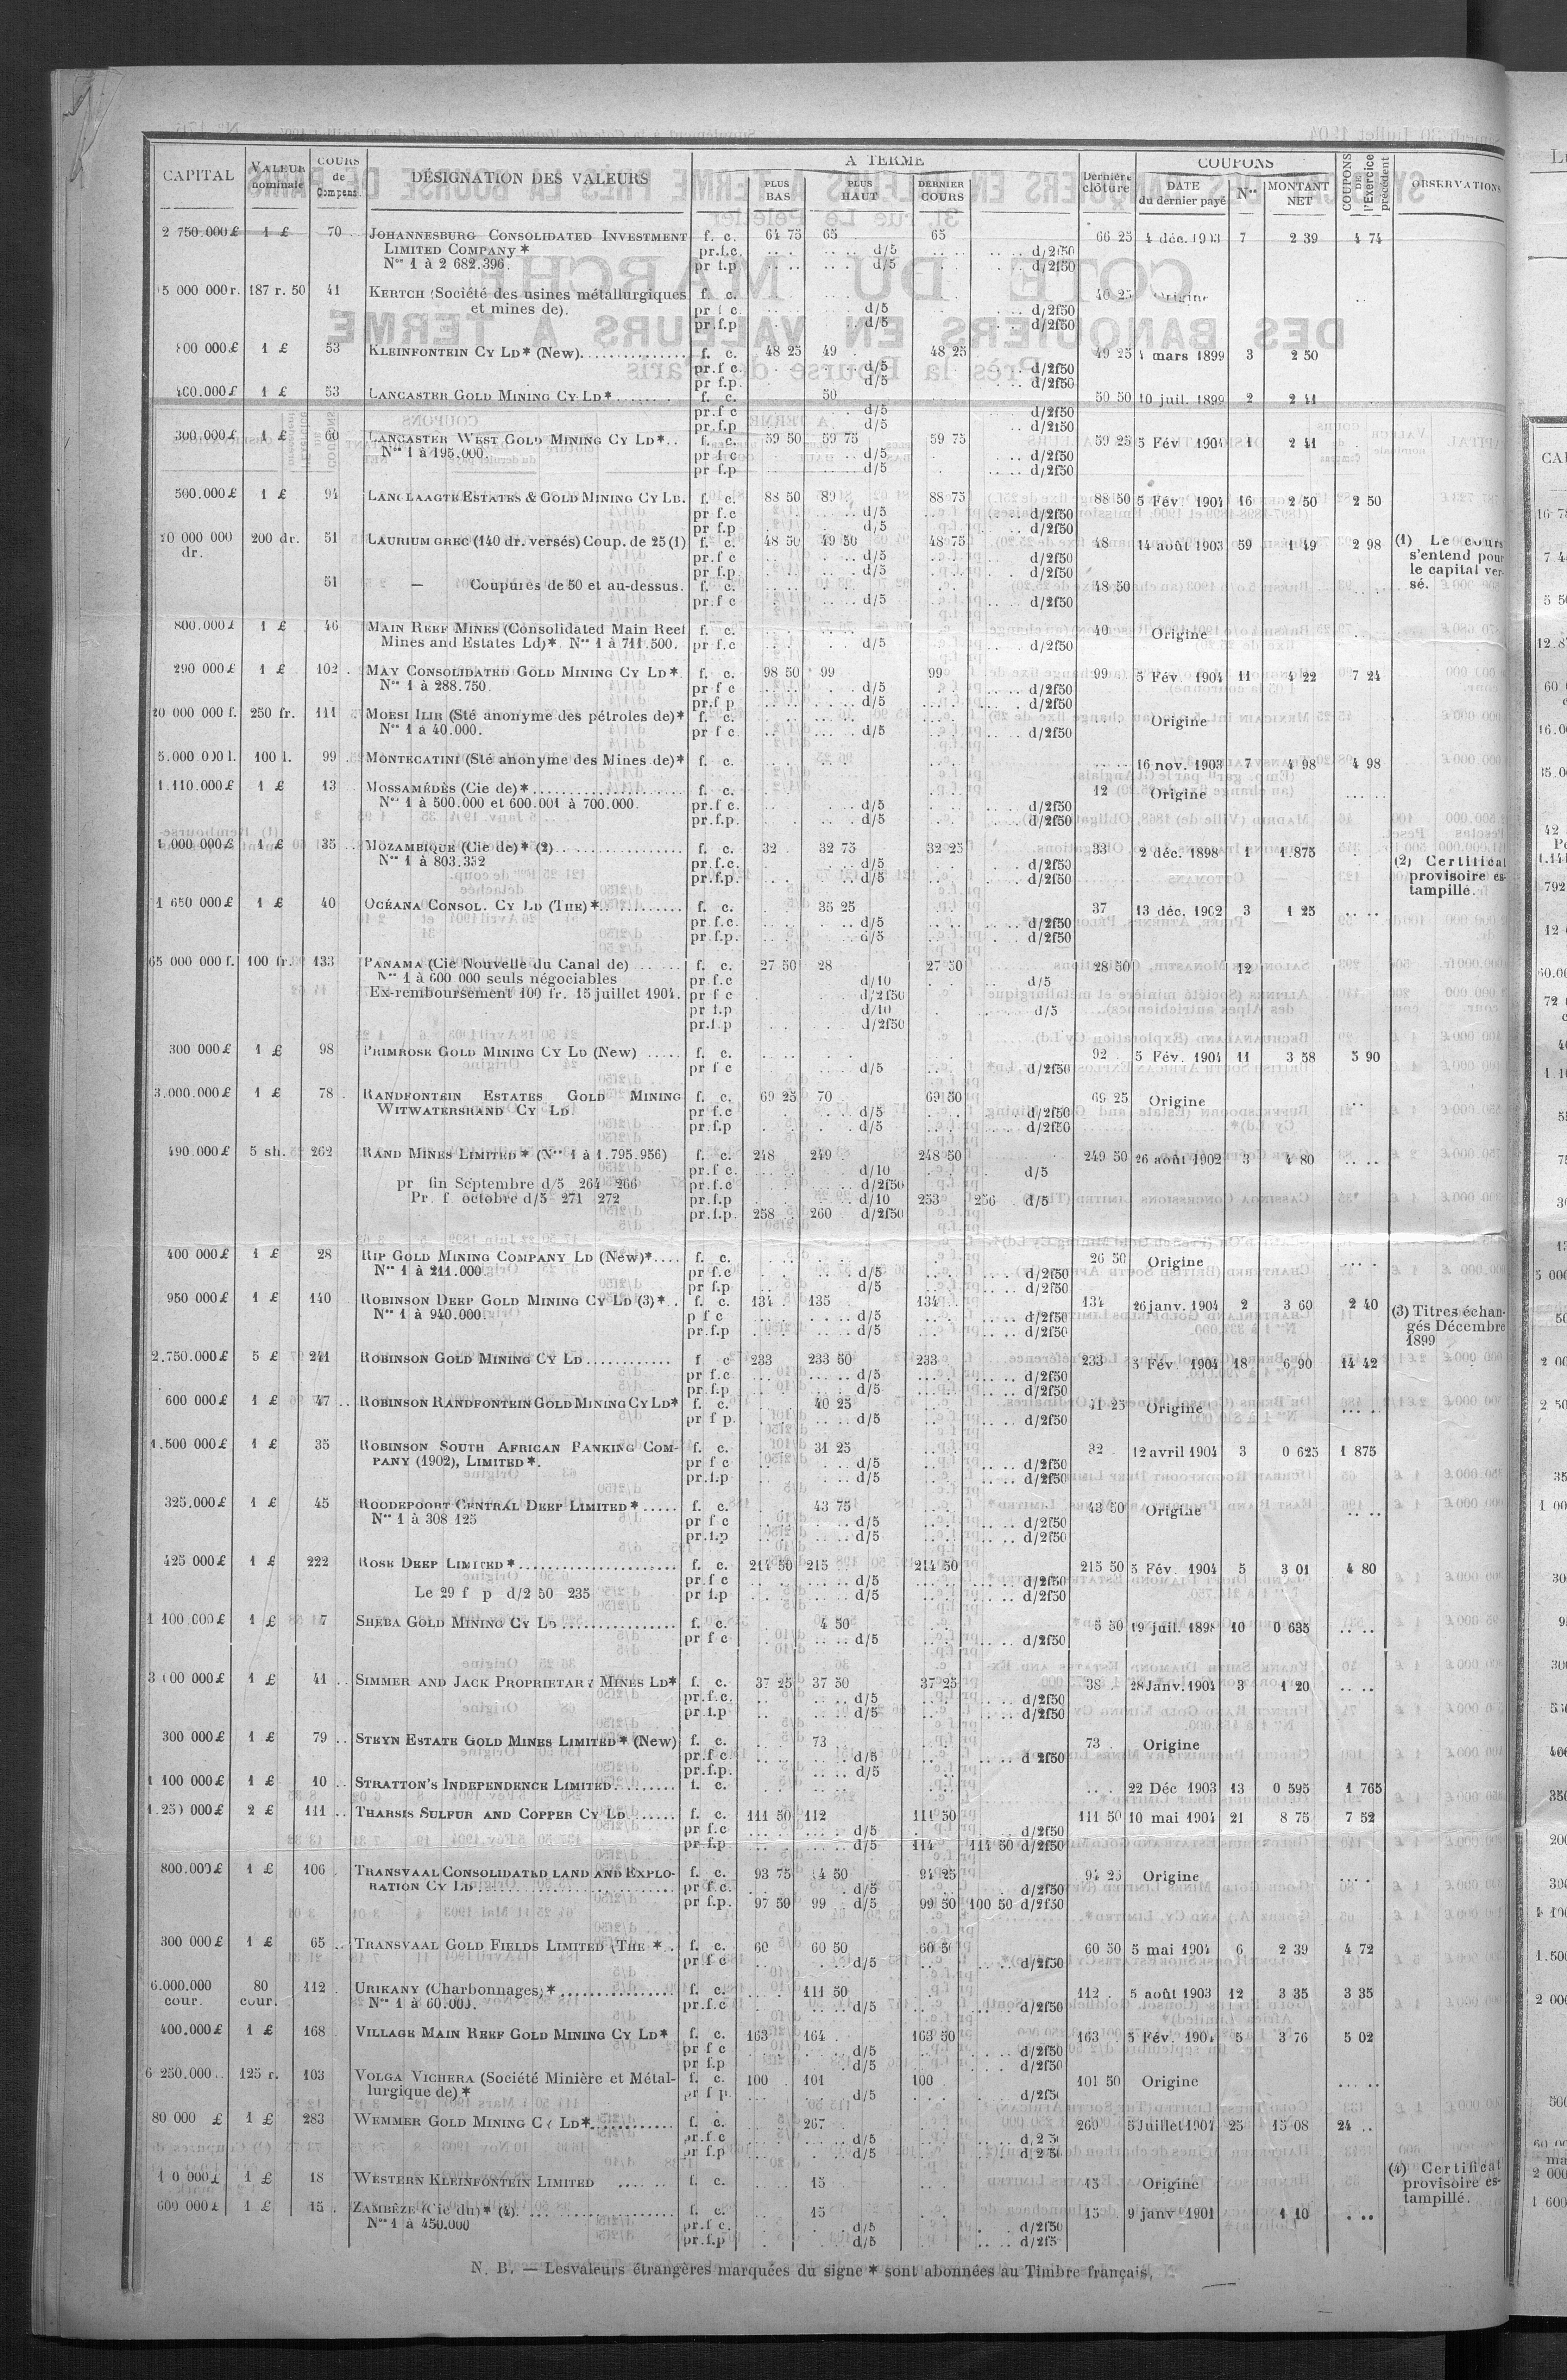 CAPITAL | VALEUR nominale | COURS de Compens. | DÉSIGNATION DES VALEURS | A TERME | PLUS BAS | PLUS HAUT | DERNIER COURS | Dernière clôture | COUPONS | DATE du dernier payé | Nos | MONTANT NET | COUPONS DE l'Exercice précédent | OBSERVATIONS
2 750.000 £ 1 £ 70 JOHANNESBURG CONSOLIDATED INVESTMENT f. c. 64 75 65 65 66 25 4 déc. 1903 7 2 39 4 74
LIMITED COMPANY * pr.f.c. d/5 d/2f50
Nos 1 à 2 682.396. pr f.p d/5 d/2f50
5 000 000 r. 187 r. 50 41 KERTCH (Société des usines métallurgiques f. c. 40 25 Origine
et mines de). pr f c d/5 d/2f50
pr.f.p d/5 d/2f50
800 000 £ 1 £ 53 KLEINFONTEIN CY LD* (New) f. c. 48 25 49 48 25 49 25 mars 1899 3 2 50
pr.f c. d/5 d/2f50
pr f.p. d/5 d/2f50
400.000 £ 1 £ 53 LANCASTER GOLD MINING CY LD* f. c. 50 50 50 10 juil. 1899 2 2 41
pr.f c d/5 d/2f50
pr.f.p d/5 d/2f50
300.000 £ 1 £ 60 LANCASTER WEST GOLD MINING CY LD* f. c. 59 50 59 75 59 75 59 25 5 Fév 1904 1 2 41
Nos 1 à 195.000. pr f c d/5 d/2f50
pr f.p d/5 d/2f50
500.000 £ 1 £ 94 LANGLAAGTE ESTATES & GOLD MINING CY LD. f. c. 88 50 89 88 75 88 50 5 Fév. 1904 16 2 50 2 50
pr f.c d/5 d/2f50
pr f.p d/5 d/2f50
200 dr. 51 LAURIUM GREC (140 dr. versés) Coup. de 25 (1) f. c. 48 50 49 50 48 75 48 14 août 1903 59 1 49 2 98 (1) Le cours
dr. pr.f c d/5 d/2f50 s'entend pour
pr f.p. d/5 d/2f50 le capital ver-
51 — Coupures de 50 et au-dessus. f. c. 48 50 sé.
pr.f c d/5 d/2f50
800.000 £ 1 £ 46 MAIN REEF MINES (Consolidated Main Reef f. c. 40 Origine
Mines and Estates Ld)*. Nos 1 à 711.500. pr f.c d/5 d/2f50
290 000 £ 1 £ 102 MAY CONSOLIDATED GOLD MINING CY LD* f. c. 98 50 99 99 99 5 Fév. 1904 11 4 22 7 24
Nos 1 à 288.750. pr f c d/5 d/2f50
pr.f p d/5 d/2f50
20 000 000 f. 250 fr. 111 MOESI ILIR (Sté anonyme des pétroles de)* f. c. Origine
Nos 1 à 40.000. pr f c. d/5 d/2f50
5.000 000 l. 100 l. 99 MONTECATINI (Sté anonyme des Mines de)* f. c. 16 nov. 1903 7 4 98 4 98
1.110.000 £ 1 £ 13 MOSSAMÉDÈS (Cie de)* f. c. 12 Origine
Nos 1 à 500.000 et 600.001 à 700.000. pr.f c. d/5 d/2f50
pr.f.p. d/5 d/2f50
1 000 000 £ 1 £ 35 MOZAMBIQUE (Cie de)* (2) f. c. 32 32 75 32 25 33 2 déc. 1898 1 1.875
Nos 1 à 803.332 pr.f.c. d/5 d/2f50 (2) Certificat
pr.f.p. d/5 d/2f50 provisoire es-
tampillé.
1 650 000 £ 1 £ 40 OCÉANA CONSOL. CY LD (THE)* f. c. 35 25 37 13 déc. 1902 3 1 25
pr.f.c. d/5 d/2f50
pr.f.p. d/5 d/2f50
65 000 000 f. 100 fr. 133 PANAMA (Cie Nouvelle du Canal de) f. c. 27 50 28 27 50 28 50 12
Nos 1 à 600 000 seuls négociables pr f.c d/10 d/5
Ex-remboursement 100 fr. 15 juillet 1904. pr f c d/2f50
pr f.p d/10 d/5
pr.f.p d/2f50
300 000 £ 1 £ 98 PRIMROSE GOLD MINING CY LD (New) f. c. 92 5 Fév. 1904 11 3 58 5 90
pr f c d/5 d/2f50
3.000.000 £ 1 £ 78 RANDFONTEIN ESTATES GOLD MINING f. c. 69 25 70 69 50 69 25 Origine
WITWATERSRAND CY LD pr f.c d/5 d/2f50
pr.f.p d/5 d/2f50
490.000 £ 5 sh. 262 RAND MINES LIMITED* (Nos 1 à 1.795.956) f. c. 248 249 248 50 249 50 26 août 1902 3 4 80
pr.f c. d/10 d/5
pr fin Septembre d/5 264 266 pr.f.c d/2f50
Pr. f octobre d/5 271 272 pr.f.p d/10 253 256 d/5
pr.f.p. 258 260 d/2f50
400 000 £ 1 £ 28 RIP GOLD MINING COMPANY LD (New)* f. c. 26 50 Origine
Nos 1 à 211.000. pr f.c d/5 d/2f50
pr f.p d/5 d/2f50
950 000 £ 1 £ 140 ROBINSON DEEP GOLD MINING CY LD (3)* f. c. 134 135 134 134 26 janv. 1904 2 3 60 2 40 (3) Titres échan-
Nos 1 à 940.000. p f c d/5 d/2f50 gés Décembre
pr.f.p d/5 d/2f50 1899
2.750.000 £ 5 £ 241 ROBINSON GOLD MINING CY LD f c 233 233 50 233 233 5 Fév 1904 18 6 90 14 42
pr f.c d/5 d/2f50
pr.f.p d/5 d/2f50
600 000 £ 1 £ 47 ROBINSON RANDFONTEIN GOLD MINING CY LD* f. c. 40 25 41 25 Origine
pr f p. d/5 d/2f50
1.500 000 £ 1 £ 35 ROBINSON SOUTH AFRICAN BANKING COM- f. c. 31 25 32 12 avril 1904 3 0 625 1 875
PANY (1902), LIMITED*. pr f c d/5 d/2f50
pr.f.p d/5 d/2f50
325.000 £ 1 £ 45 ROODEPOORT CENTRAL DEEP LIMITED* f. c. 43 75 43 50 Origine
Nos 1 à 308 125 pr f c d/5 d/2f50
pr.f.p d/5 d/2f50
425 000 £ 1 £ 222 ROSE DEEP LIMITED* f. c. 214 50 215 214 50 215 50 5 Fév. 1904 5 3 01 4 80
pr.f c d/5 d/2f50
Le 29 f p d/2 50 235 pr f.p d/5 d/2f50
1 100 000 £ 1 £ 7 SHEBA GOLD MINING CY LD f. c. 4 50 5 50 19 juil. 1898 10 0 635
pr f c d/5 d/2f50
000 £ 1 £ 41 SIMMER AND JACK PROPRIETARY MINES LD* f. c. 37 25 37 50 37 25 38 28 Janv. 1904 3 1 20
pr.f.c. d/5 d/2f50
pr f.p d/5 d/2f50
300 000 £ 1 £ 79 STEYN ESTATE GOLD MINES LIMITED* (New) f. c. 73 73 Origine
pr.f c. d/5 d 2f50
pr.f.p. d/5
1 100 000 £ 1 £ 10 STRATTON'S INDEPENDENCE LIMITED f. c. 22 Déc 1903 13 0 595 1 765
1.250 000 £ 2 £ 111 THARSIS SULFUR AND COPPER CY LD f. c. 111 50 112 111 50 111 50 10 mai 1904 21 8 75 7 52
pr f.c d/5 d/2f50
pr f.p d/5 114 114 50 d/2f50
800.000 £ 1 £ 106 TRANSVAAL CONSOLIDATED LAND AND EXPLO- f. c. 93 75 4 50 94 25 94 25 Origine
RATION CY LD pr f.c. d/5 d/2f50
pr f.p. 97 50 99 d/5 99 50 100 50 d/2f50
300 000 £ 1 £ 65 TRANSVAAL GOLD FIELDS LIMITED (THE * f. c. 60 60 50 60 50 60 50 5 mai 1904 6 2 39 4 72
pr f c d/5 d/2f50
6.000.000 80 112 URIKANY (Charbonnages)* f. c. 111 50 112 5 août 1903 12 3 35 3 35
cour. cour. Nos 1 à 60.000. pr.f.c d/5 d/2f50
400.000 £ 1 £ 168 VILLAGE MAIN REEF GOLD MINING CY LD* f. c. 163 164 163 50 163 5 Fév. 1904 5 3 76 5 02
pr f c d/5 d/2f50
pr f.p d/5 d/2f50
6 250.000 125 r. 103 VOLGA VICHERA (Société Minière et Métal- f. c. 100 101 100 101 50 Origine
lurgique de)* pr f p. d/5 d/2f50
80 000 £ 1 £ 283 WEMMER GOLD MINING CY LD* f. c. 267 269 5 Juillet 1904 25 15 08 24
pr.f.c d/5 d 2 50
pr f.p d/5 d 2 50
1 £ 18 WESTERN KLEINFONTEIN LIMITED f. c. 15 15 Origine (4) Certificat
provisoire es-
600 000 £ 1 £ 15 ZAMBÈZE (Cie du)* (4) f. c. 15 15 9 janv 1901 1 10 tampillé.
Nos 1 à 450.000 pr.f c. d/5 d/2f50
pr.f.p d/5
N. B. — Les valeurs étrangères marquées du signe * sont abonnées au Timbre français.